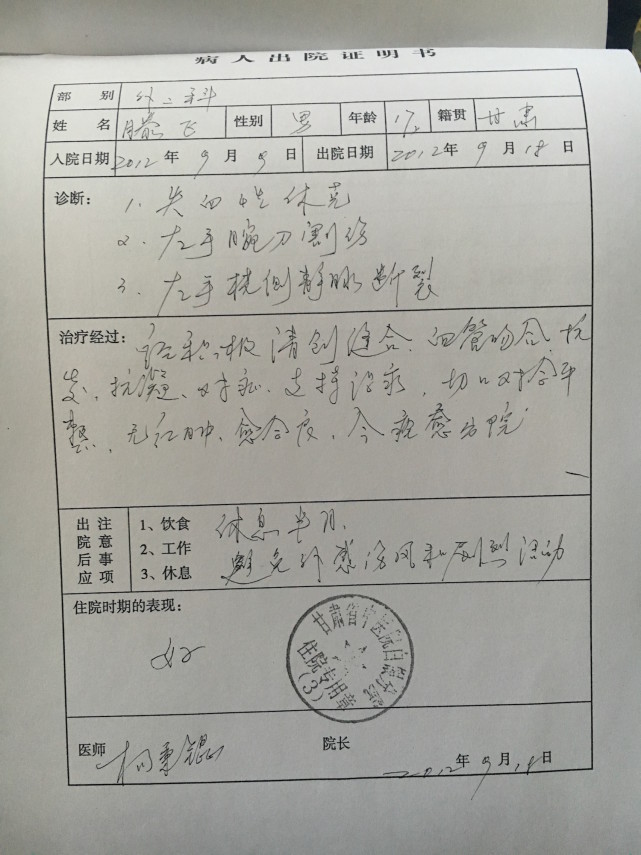 病人出院证明书
部 别 外二科
姓 名 滕飞 性别 男 年龄 17 籍贯 甘肃
入院日期 2012年9月9日 出院日期 2012年9月18日
诊断： 1、失血性休克
2、左手腕刀割伤
3、左手桡侧静脉断裂
治疗经过： 积极清创缝合、血管吻合、抗
炎、抗凝、对症、支持治疗，切口对合平
整、无红肿、愈合良，今痊愈出院
出院后应 注意事项 1、饮食 休息半月、
2、工作 避免外感伤风和剧烈活动
3、休息
住院时期的表现：
好
甘肃省中医院白银分院
住院专用章
（3）
医师 院长 2012年9月18日